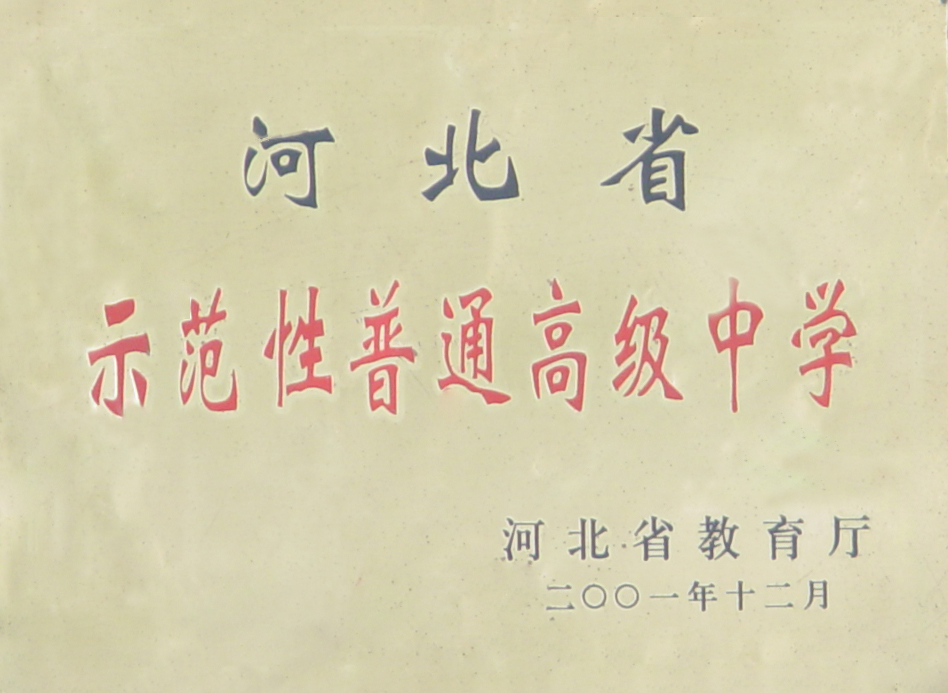 河北省
示范性普通高级中学
河北省教育厅
二〇〇一年十二月